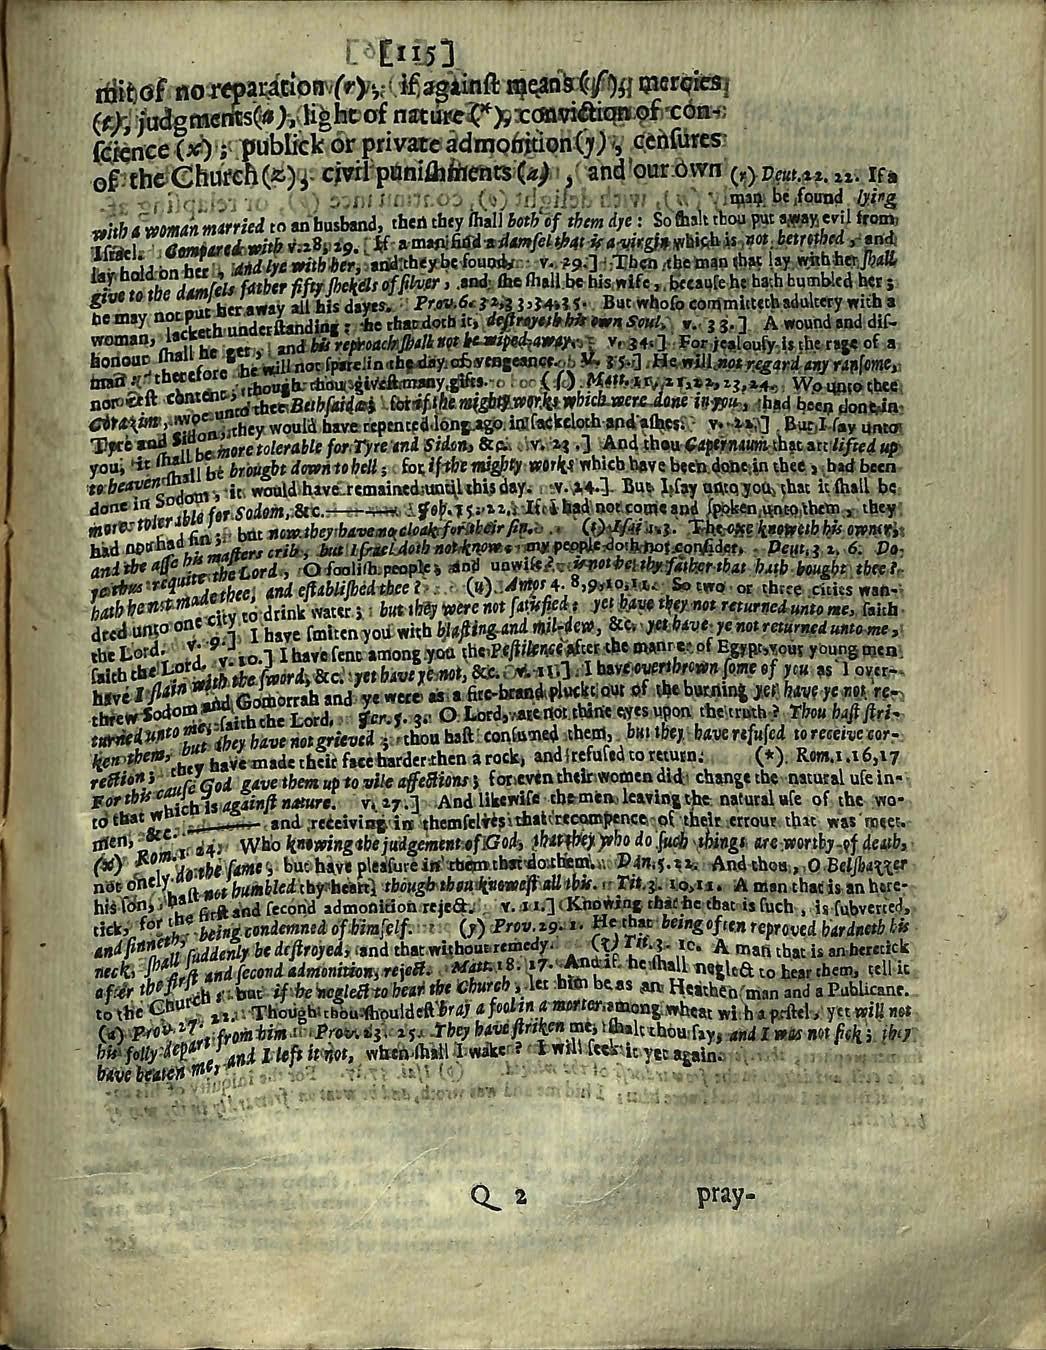 [115]
mit of no reparation (r); if against means (ſ), mercies
(t), judgments (u), light of nature (*), conviction of con-
ſcience (x); publick or private admonition (y), cenſures
of the Church (z), civil puniſhments (a), and our own
(r) Deut. 22. 22. If a
man be found lying
with a woman married to an husband, then they ſhall both of them dye: So ſhalt thou put away evil from
Iſrael. Compared with v. 28, 29. If a man find a damſel that is a virgin which is not betrothed, and
lay hold on her, and lye with her, and they be found, v. 29.] Then the man that lay with her ſhall
give to the damſels father fifty ſhekels of ſilver, and ſhe ſhall be his wife, becauſe he hath humbled her;
he may not put her away all his dayes. Prov. 6. 32, 33, 34, 35. But whoſo committeth adultery with a
woman, lacketh underſtanding: he that doth it, deſtroyeth his own Soul. v. 33.] A wound and diſ-
honour ſhall he get, and his reproach ſhall not be wiped away. v. 34.] For jealouſy is the rage of a
man: therefore he will not ſpare in the day of vengeance. V. 35.] He will not regard any ranſome,
nor reſt content, though thou giveſt many gifts. (ſ) Matt. 11, 21, 22, 23, 24. Wo unto thee
Corazim, woe unto thee Bethſaida; for if the mighty works which were done in you, had been done in
Tyre and Sidon, they would have repented long ago in ſackcloth and aſhes. v. 22.] But I ſay unto
you, it ſhall be more tolerable for Tyre and Sidon, &c. v. 23.] And thou Capernaum that art lifted up
to heaven ſhall be brought down to hell; for if the mighty works which have been done in thee, had been
done in Sodom, it would have remained until this day. v. 24.] But I ſay unto you, that it ſhall be
more tolerable for Sodom, &c. —— Joh. 15. 22. If I had not come and ſpoken unto them, they
had not had ſin; but now they have no cloak for their ſin. (t) Iſai 1. 3. The oxe knoweth his owner,
and the aſſe his maſters crib, but Iſrael doth not know, my people doth not conſider. Deut. 32. 6. Do
ye thus requite the Lord, O fooliſh people, and unwiſe? is not he thy father that hath bought thee?
hath he not made thee, and eſtabliſhed thee? (u) Amos 4. 8, 9, 10, 11. So two or three cities wan-
dred unto one city to drink water; but they were not ſatisfied: yet have they not returned unto me, ſaith
the Lord. v. 9.] I have ſmiten you with blaſting and mil-dew, &c. yet have ye not returned unto me,
ſaith the Lord. v. 10.] I have ſent among you the Peſtilence after the manner of Egypt, your young men
have I ſlain with the ſword, &c. yet have ye not, &c. v. 11.] I have overthrown ſome of you as I over-
threw Sodom and Gomorrah and ye were as a fire-brand pluckt out of the burning yet have ye not re-
turned unto me, ſaith the Lord. Jer. 5. 3. O Lord, are not thine eyes upon the truth? Thou haſt ſtri-
ken them, but they have not grieved; thou haſt conſumed them, but they have refuſed to receive cor-
rection; they have made their face harder then a rock, and refuſed to return. (*) Rom. 1. 16, 17
For this cauſe God gave them up to vile affections; for even their women did change the natural uſe in-
to that which is againſt nature. v. 27.] And likewiſe the men leaving the natural uſe of the wo-
men, &c. —— and receiving in themſelves that recompence of their errour that was meet.
(x) Rom. 1 24. Who knowing the judgement of God, that they who do ſuch things are worthy of death,
not onely do the ſame, but have pleaſure in them that do them. Dan. 5. 22. And thou, O Belſhazzer
his ſon, haſt not humbled thy heart, though thou kneweſt all this. Tit. 3. 10, 11. A man that is an here-
tick, for the firſt and ſecond admonition reject. v. 11.] Knowing that he that is ſuch, is ſubverted,
and ſinneth, being condemned of himſelf. (y) Prov. 29. 1. He that being often reproved hardneth his
neck, ſhall ſuddenly be deſtroyed, and that without remedy. (z) Tit. 3. 10. A man that is an heretick
after the firſt and ſecond admonition, reject. Matt. 18. 17. And if he ſhall neglect to hear them, tell it
to the Church: but if he neglect to hear the Church, let him be as an Heathen man and a Publicane.
(a) Prov. 27. 22. Though thou ſhouldeſt bray a fool in a morter among wheat with a peſtel, yet will not
his folly depart from him. Prov. 23. 25. They have ſtriken me, ſhalt thou ſay, and I was not ſick; they
have beaten me, and I left it not, when ſhall I wake? I will ſeek it yet again.
Q 2 pray-